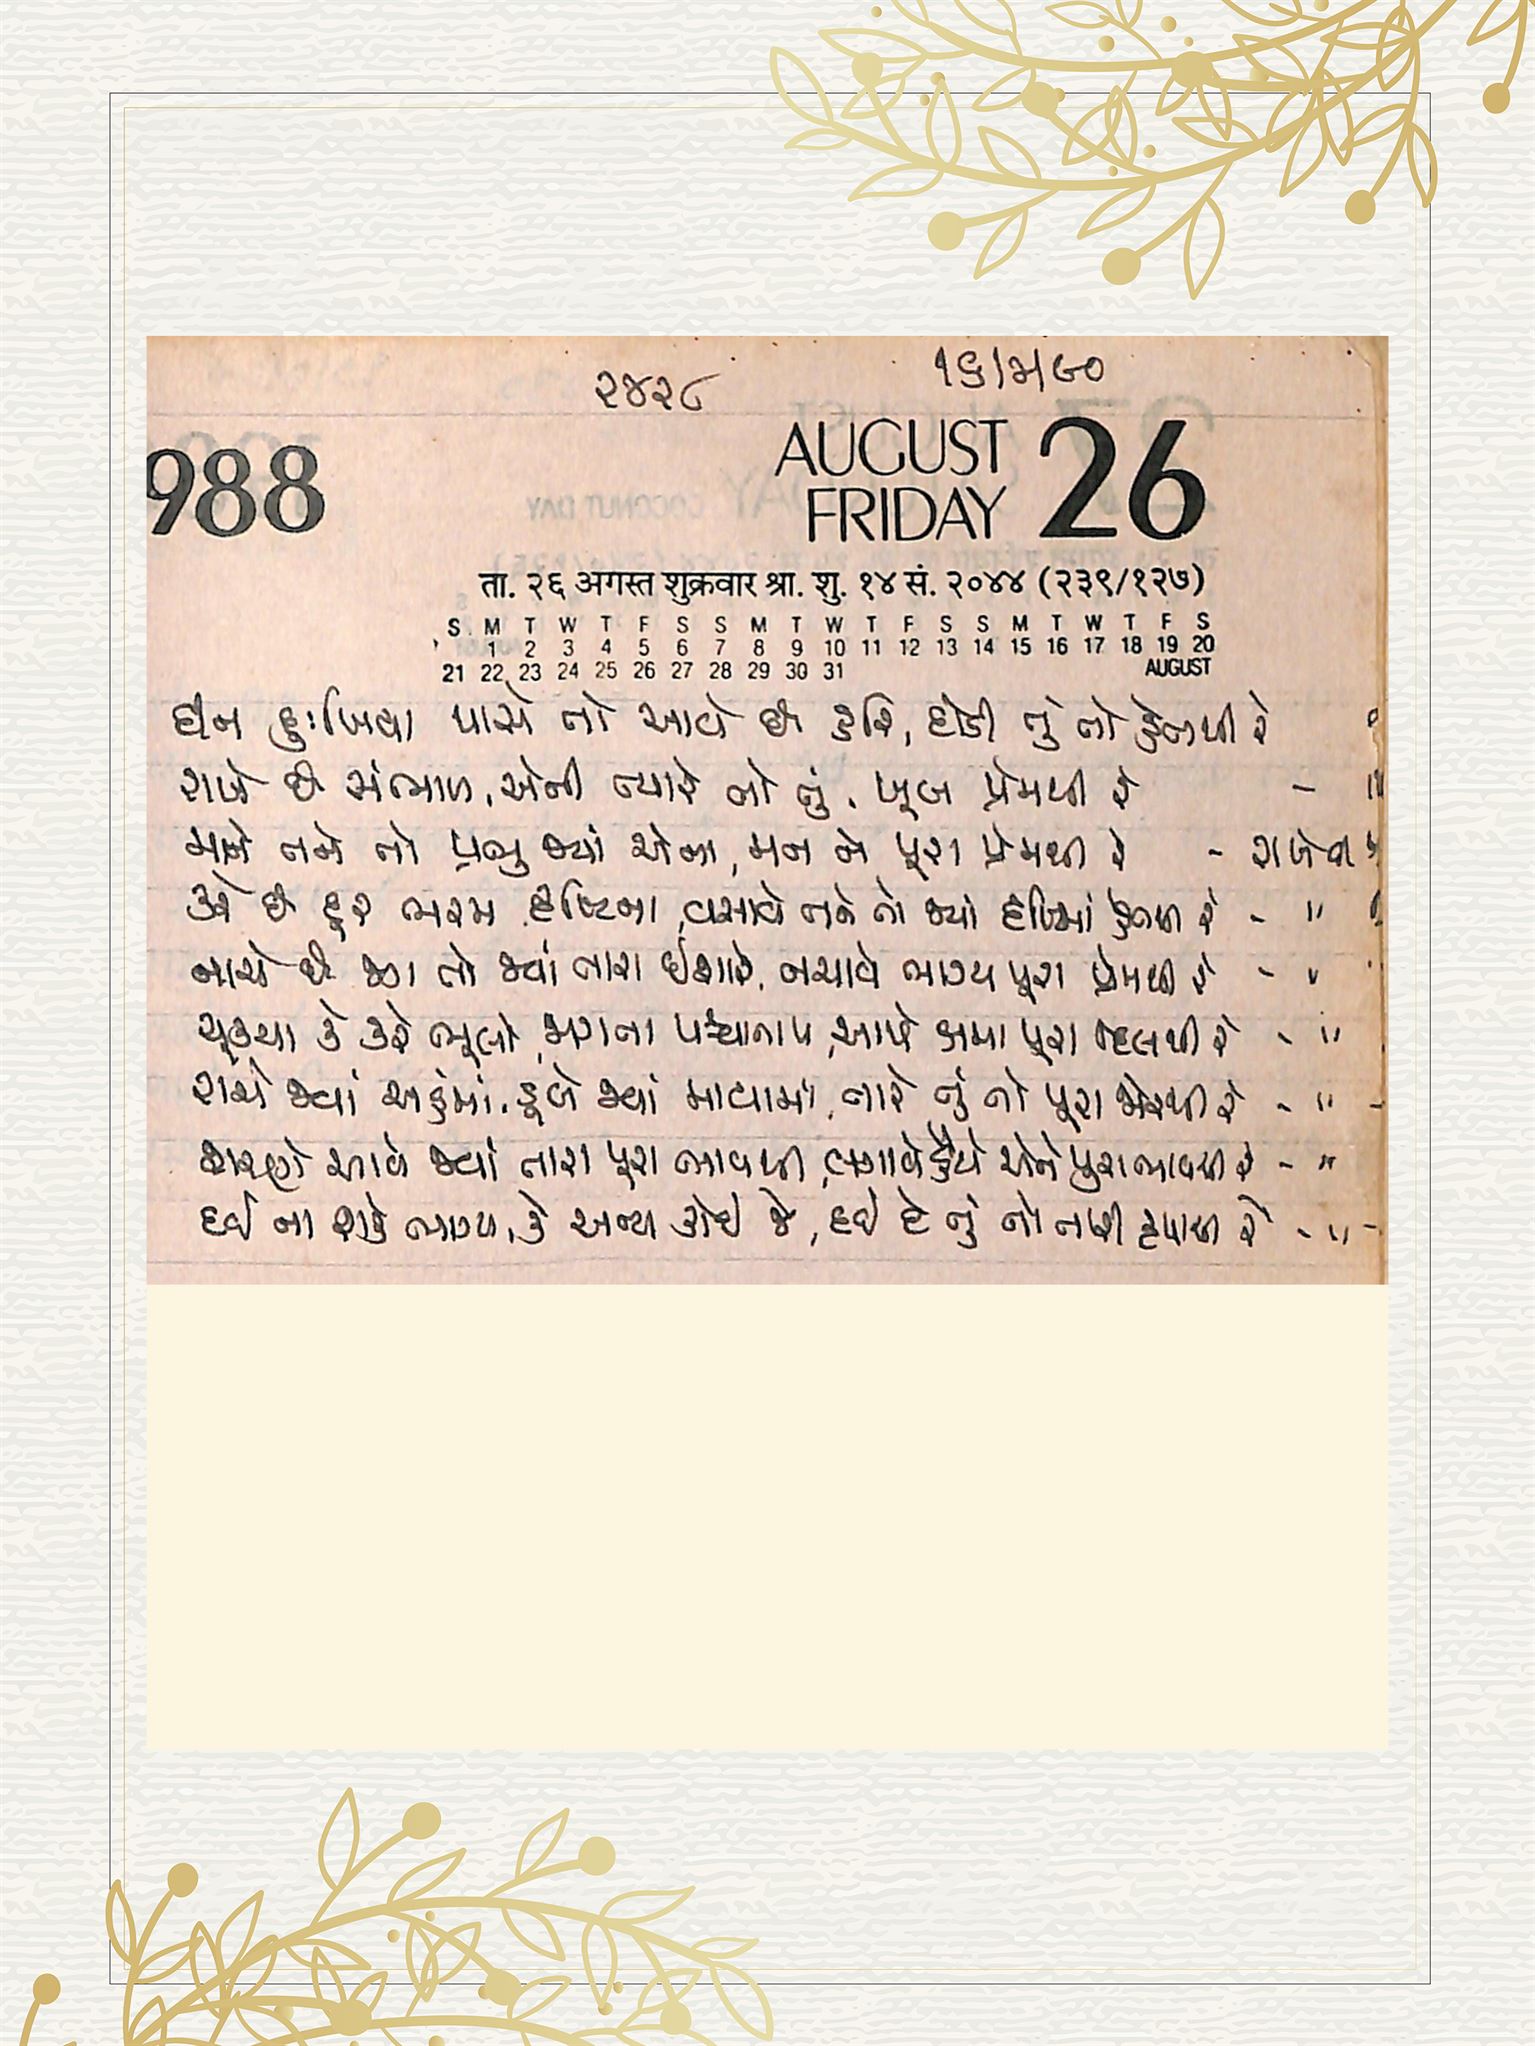 ૨૪૨૮ ૧૬/૪/૯૦
988 AUGUST 26
FRIDAY
ता. २६ अगस्त शुक्रवार श्रा. शु. १४ सं. २०४४ (२३९/१२७)
S M T W T F S S M T W T F S S M T W T F S
1 2 3 4 5 6 7 8 9 10 11 12 13 14 15 16 17 18 19 20
21 22 23 24 25 26 27 28 29 30 31 AUGUST
દીન દુઃખિયા પાસે તો આવે છે હરિ, દોડી તું તો હેતથી રે
રાખે છે સંભાળ, એની ત્યારે તો તું, ખૂબ પ્રેમથી રે - "
માને તને તો પ્રભુ જ્યાં એના, મન ને પૂરા પ્રેમથી રે - રાખે
કરે છે દૂર ભરમ દૃષ્ટિના, વસાવે તને તો જ્યાં દૃષ્ટિમાં હેતથી રે - "
નાચે છે જે તો જ્યાં તારા ઈશારે, નચાવે ભાગ્ય પૂરા પ્રેમથી રે - "
ચૂક્યા કે કરે ભૂલો, જાગતા પશ્ચાતાપ, આપે ક્ષમા પૂરા દિલથી રે - "
રાચે જ્યાં અહંમાં, ડૂબે જ્યાં માયામાં, તારે તું તો પૂરા જોરથી રે - "
શરણે આવે જ્યાં તારા પૂરા ભાવથી, લગાવે હૈયે એને પુરા ભાવથી રે - "
દઈ ના શકે ભાગ્ય, કે અન્ય કોઈ જે, દઈ દે તું તો તારી કૃપાથી રે - "